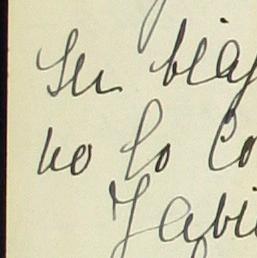 Su biaj
no lo Co
Fabi